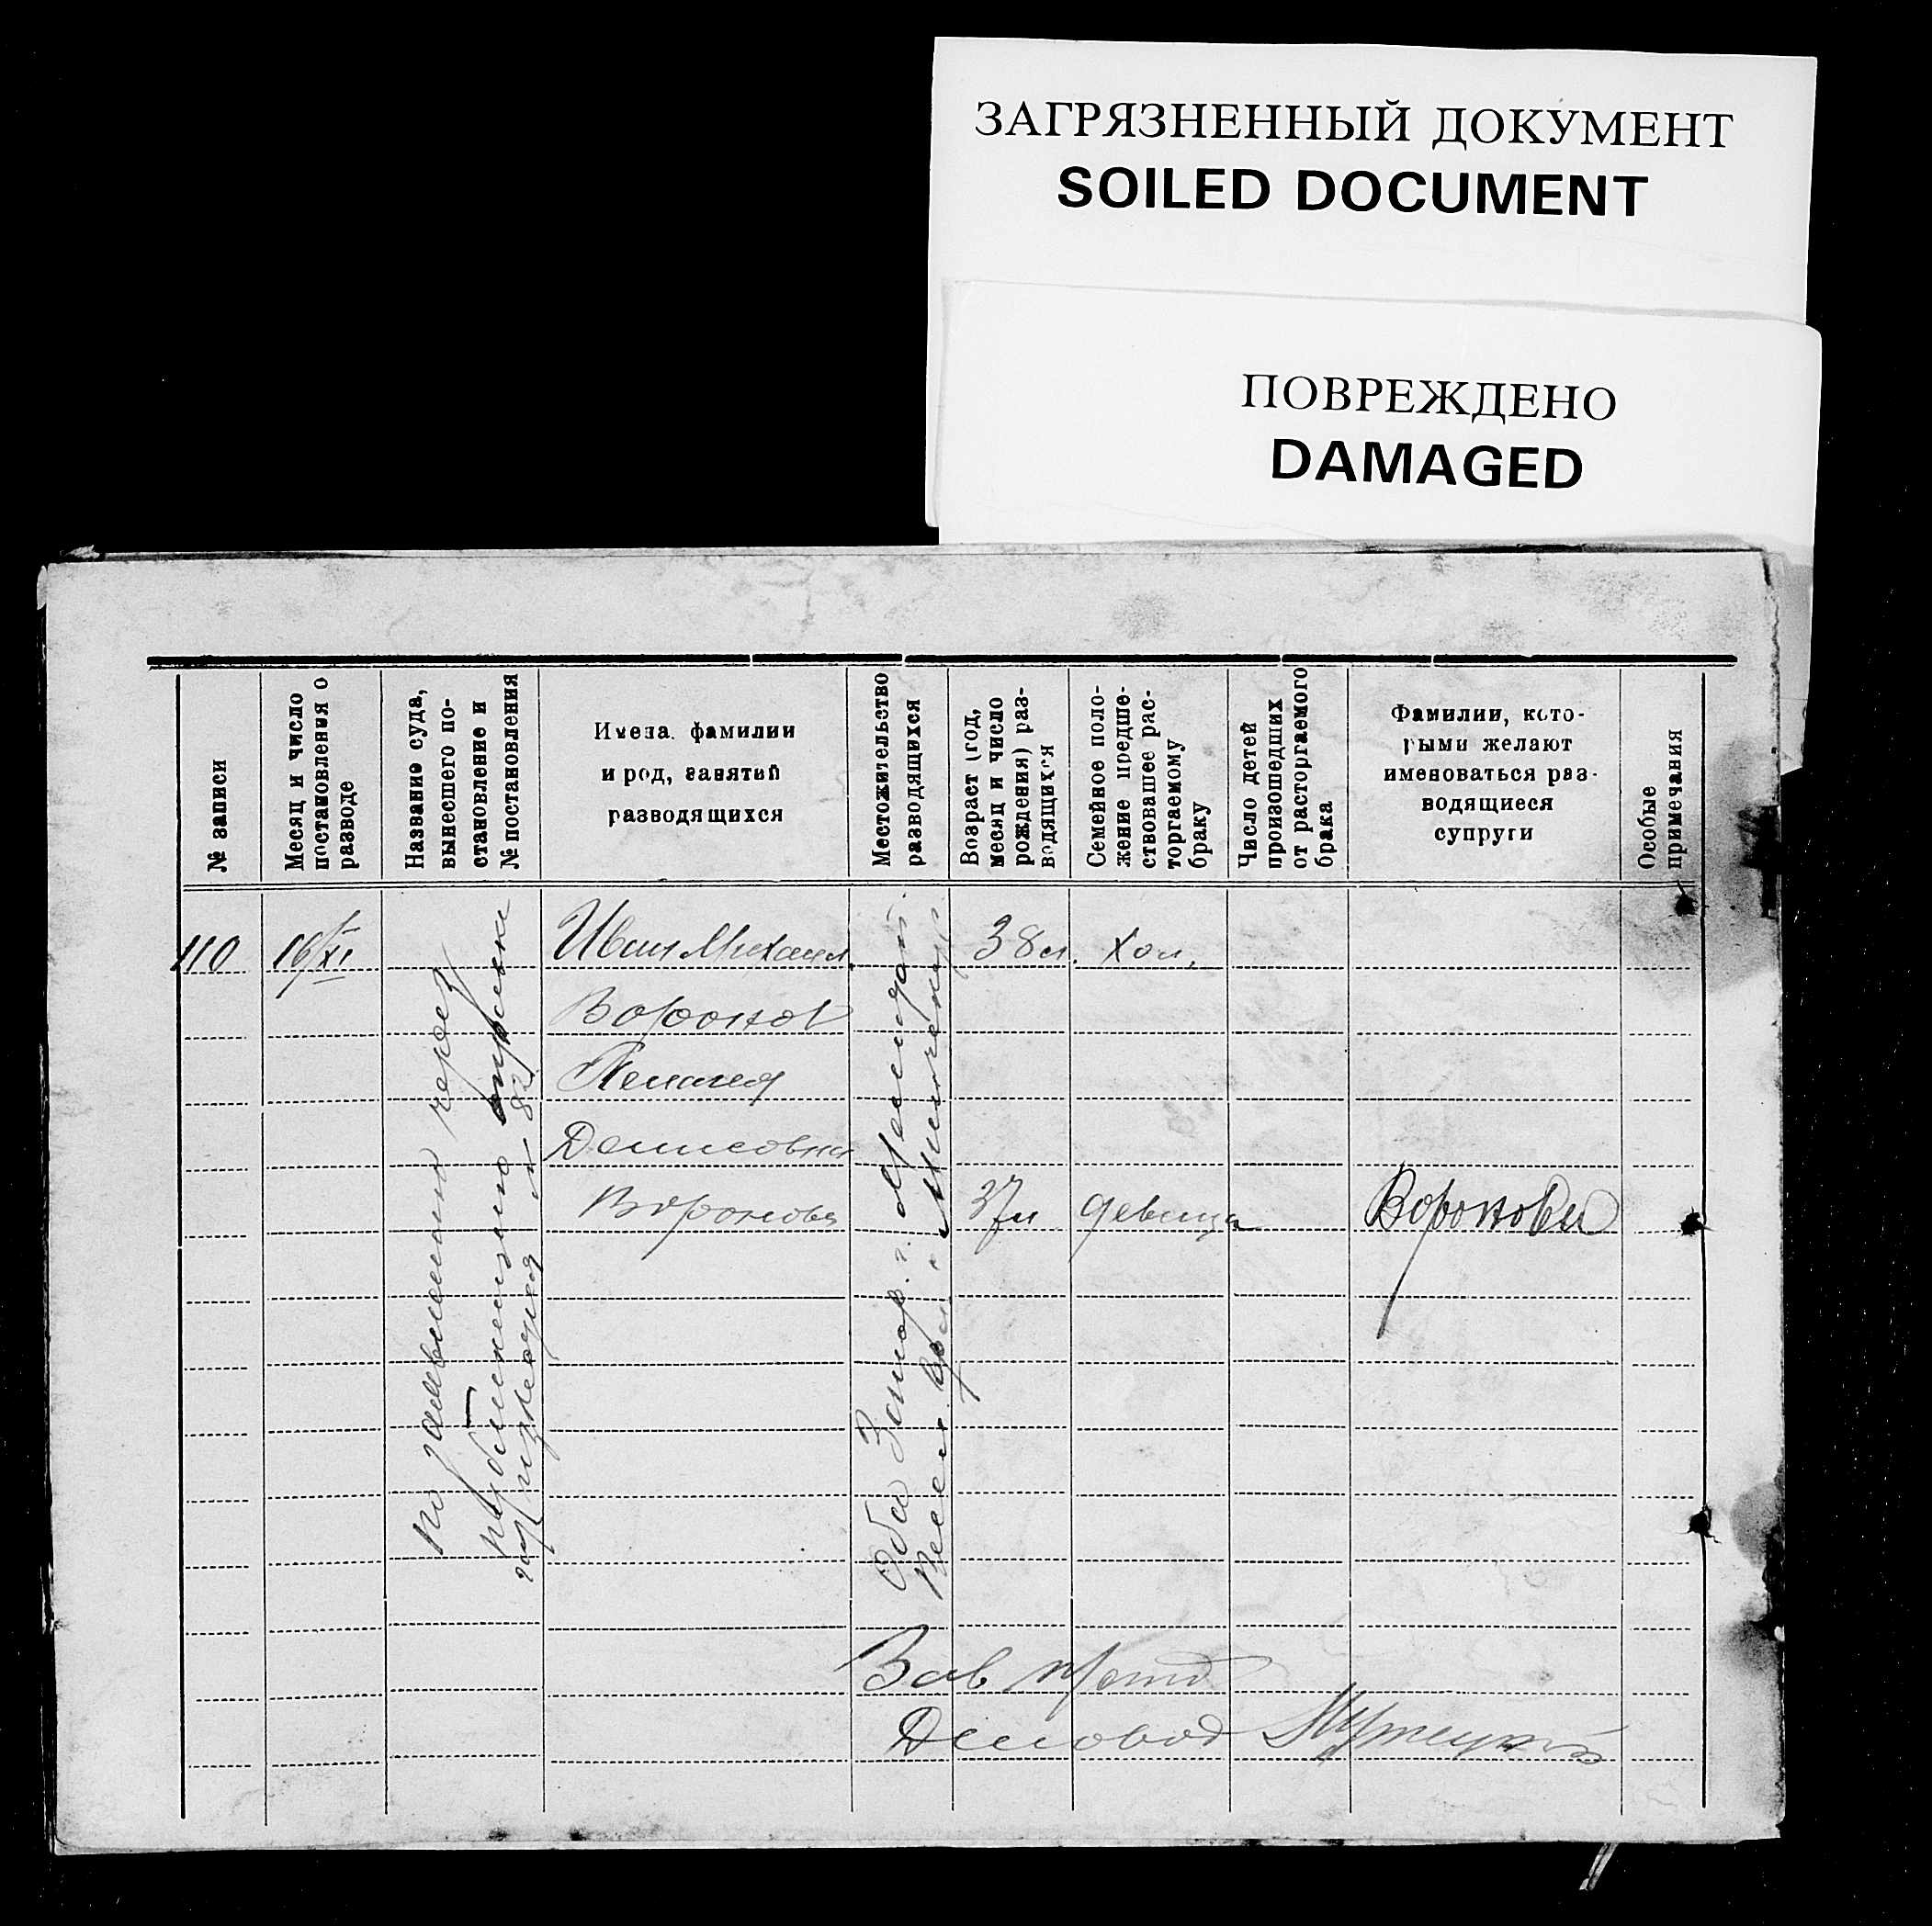 ЗАГРЯЗНЕННЫЙ ДОКУМЕНТ
SOILED DOCUMENT
ПОВРЕЖДЕНО
DAMAGED
№ записи
Месяц и число
постановления о
разводе
Название суда,
вынесшего по-
становление и
№ постановления
Имена, фамилии
и род, занятий
разводящихся
Местожительство
разводящихся
Возраст (год,
месяц и число
рождения) раз-
водящихся
Семейное поло-
жение предше-
ствовавшее рас-
торгаемому
браку
Число детей
произошедших
от расторгаемого
брака
Фамилии, кото-
рыми желают
именоваться раз-
водящиеся
супруги
Особые
примечания
110
16/XI
По заявлению через
публикацию
82
Иван Михаил.
Воронов
Пелагея
Денисовна
Воронова
Оба
38 л.
хол.
37 л
девица
Вороновы
Зав
Деловод